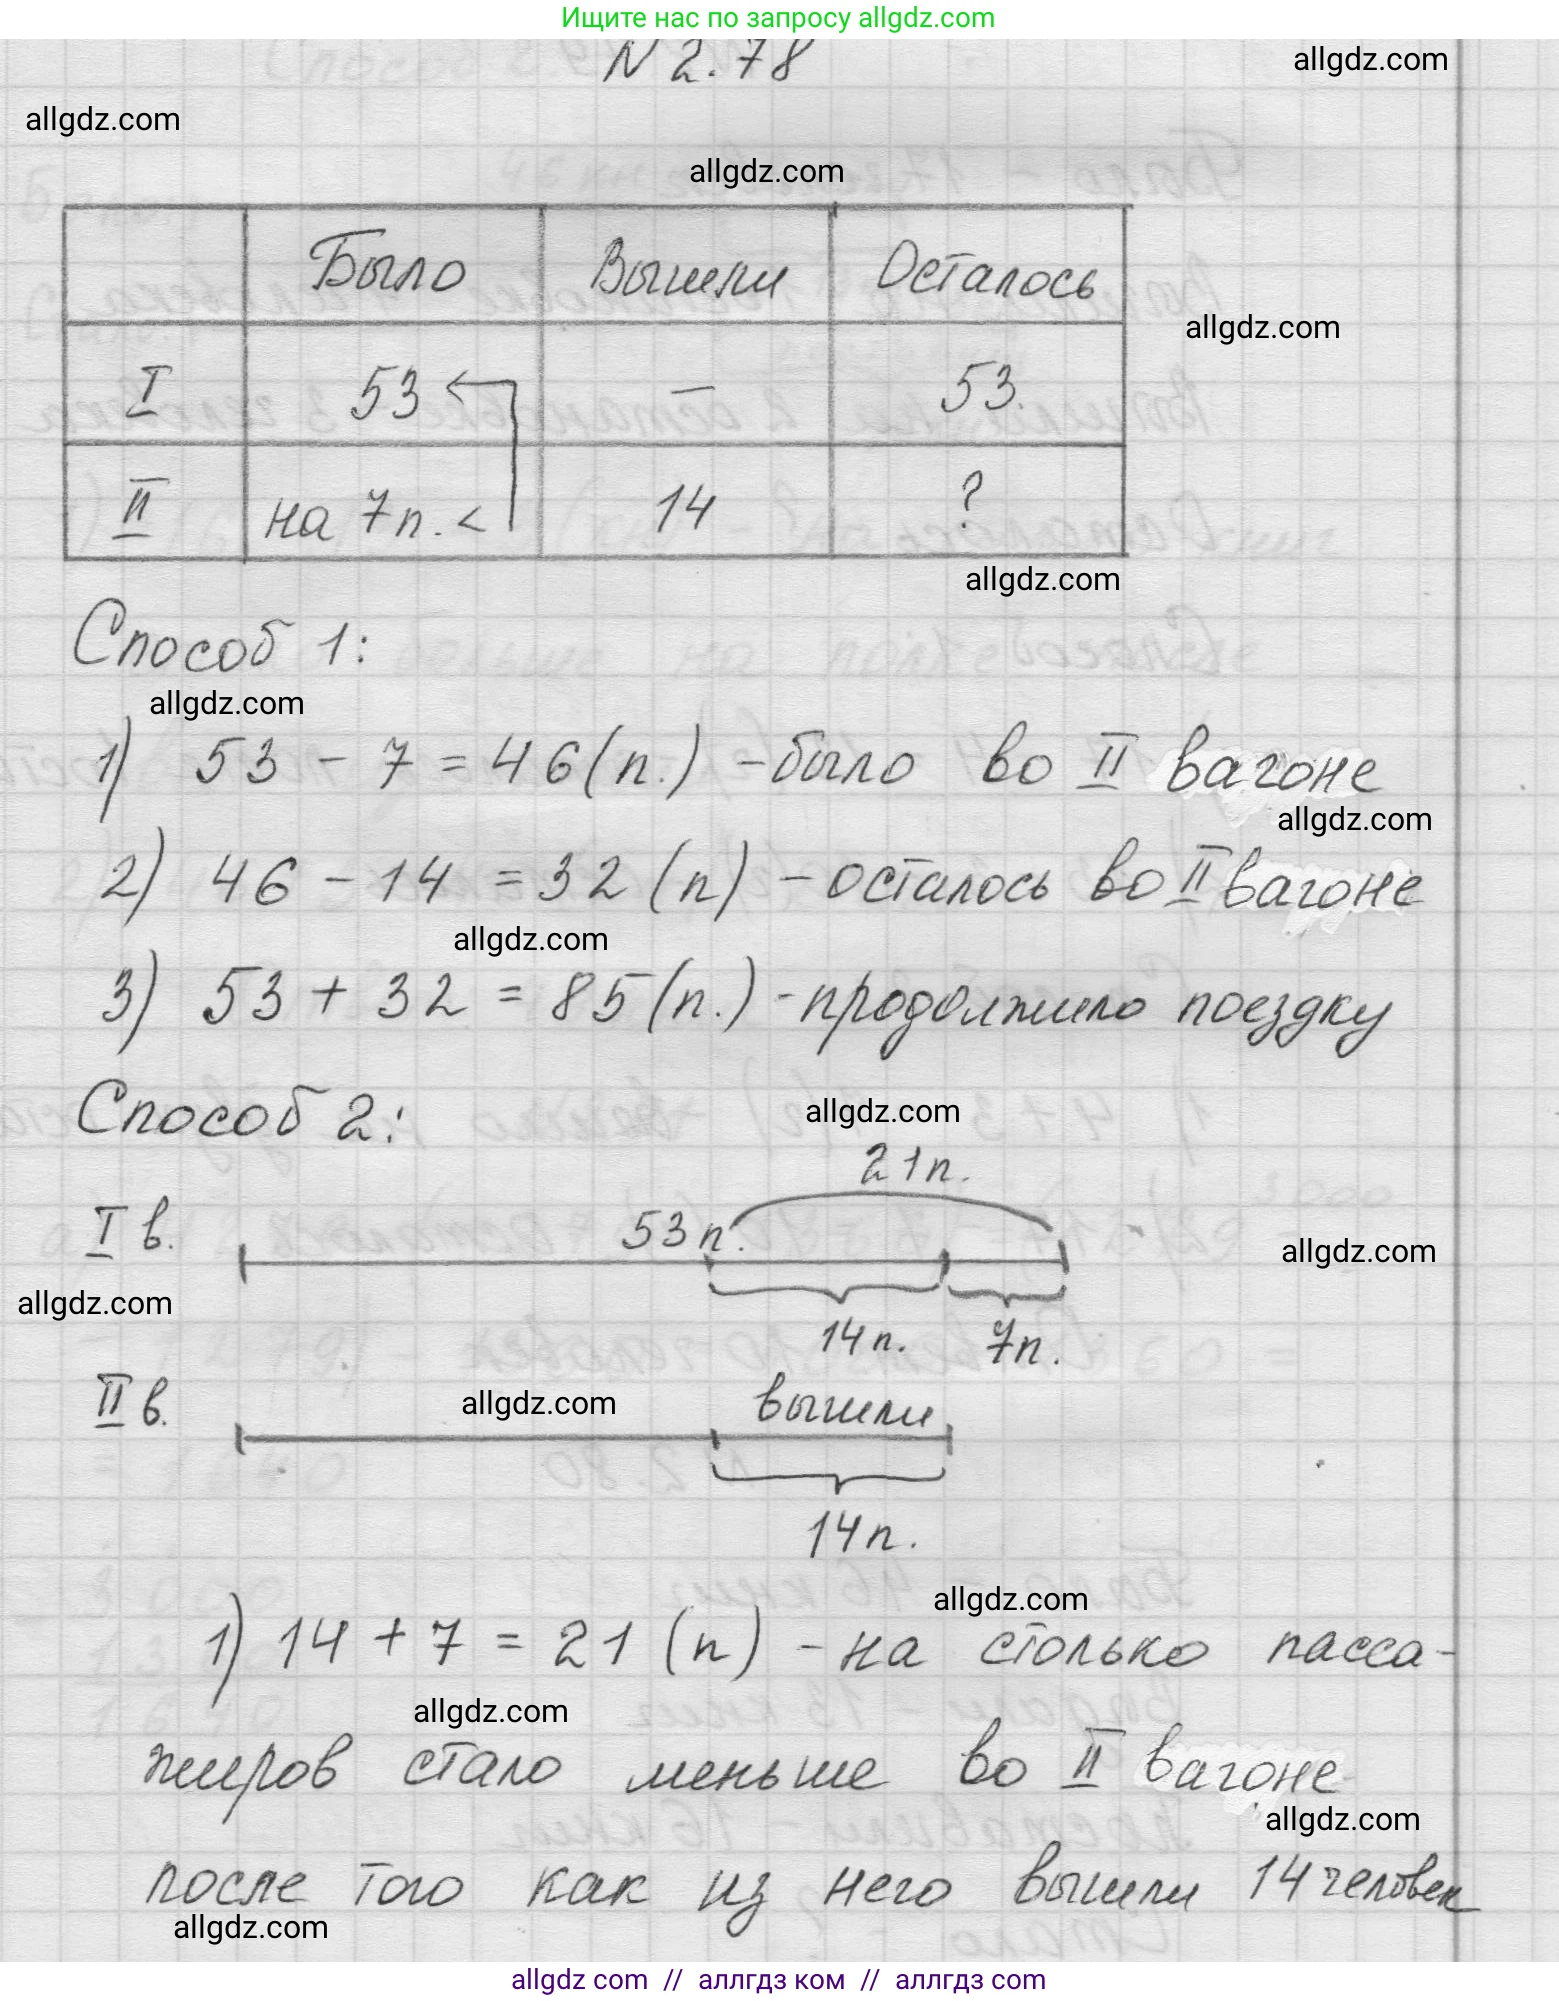 Ищите нас по запросу allgdz.com
N 2.78
allgdz.com
allgdz.com
allgdz.com
Было Вышли Осталось
allgdz.com
I 53 — 53.
II на 7п. < 14 ?
allgdz.com
Способ 1:
allgdz.com
1) 53 - 7 = 46 (п.) - было во II вагоне
allgdz.com
2) 46 - 14 = 32 (п) - осталось во II вагоне
allgdz.com
3) 53 + 32 = 85 (п.) - продолжило поездку
Способ 2:
allgdz.com
21п.
I в. 53 п.
allgdz.com
allgdz.com
14п. 7п.
II в. allgdz.com вышли
14п.
allgdz.com
1) 14 + 7 = 21 (п) - на столько пасса-
allgdz.com
жиров стало меньше во II вагоне
allgdz.com
после того как из него вышли 14 человек
allgdz.com
allgdz com // аллгдз ком // аллгдз com